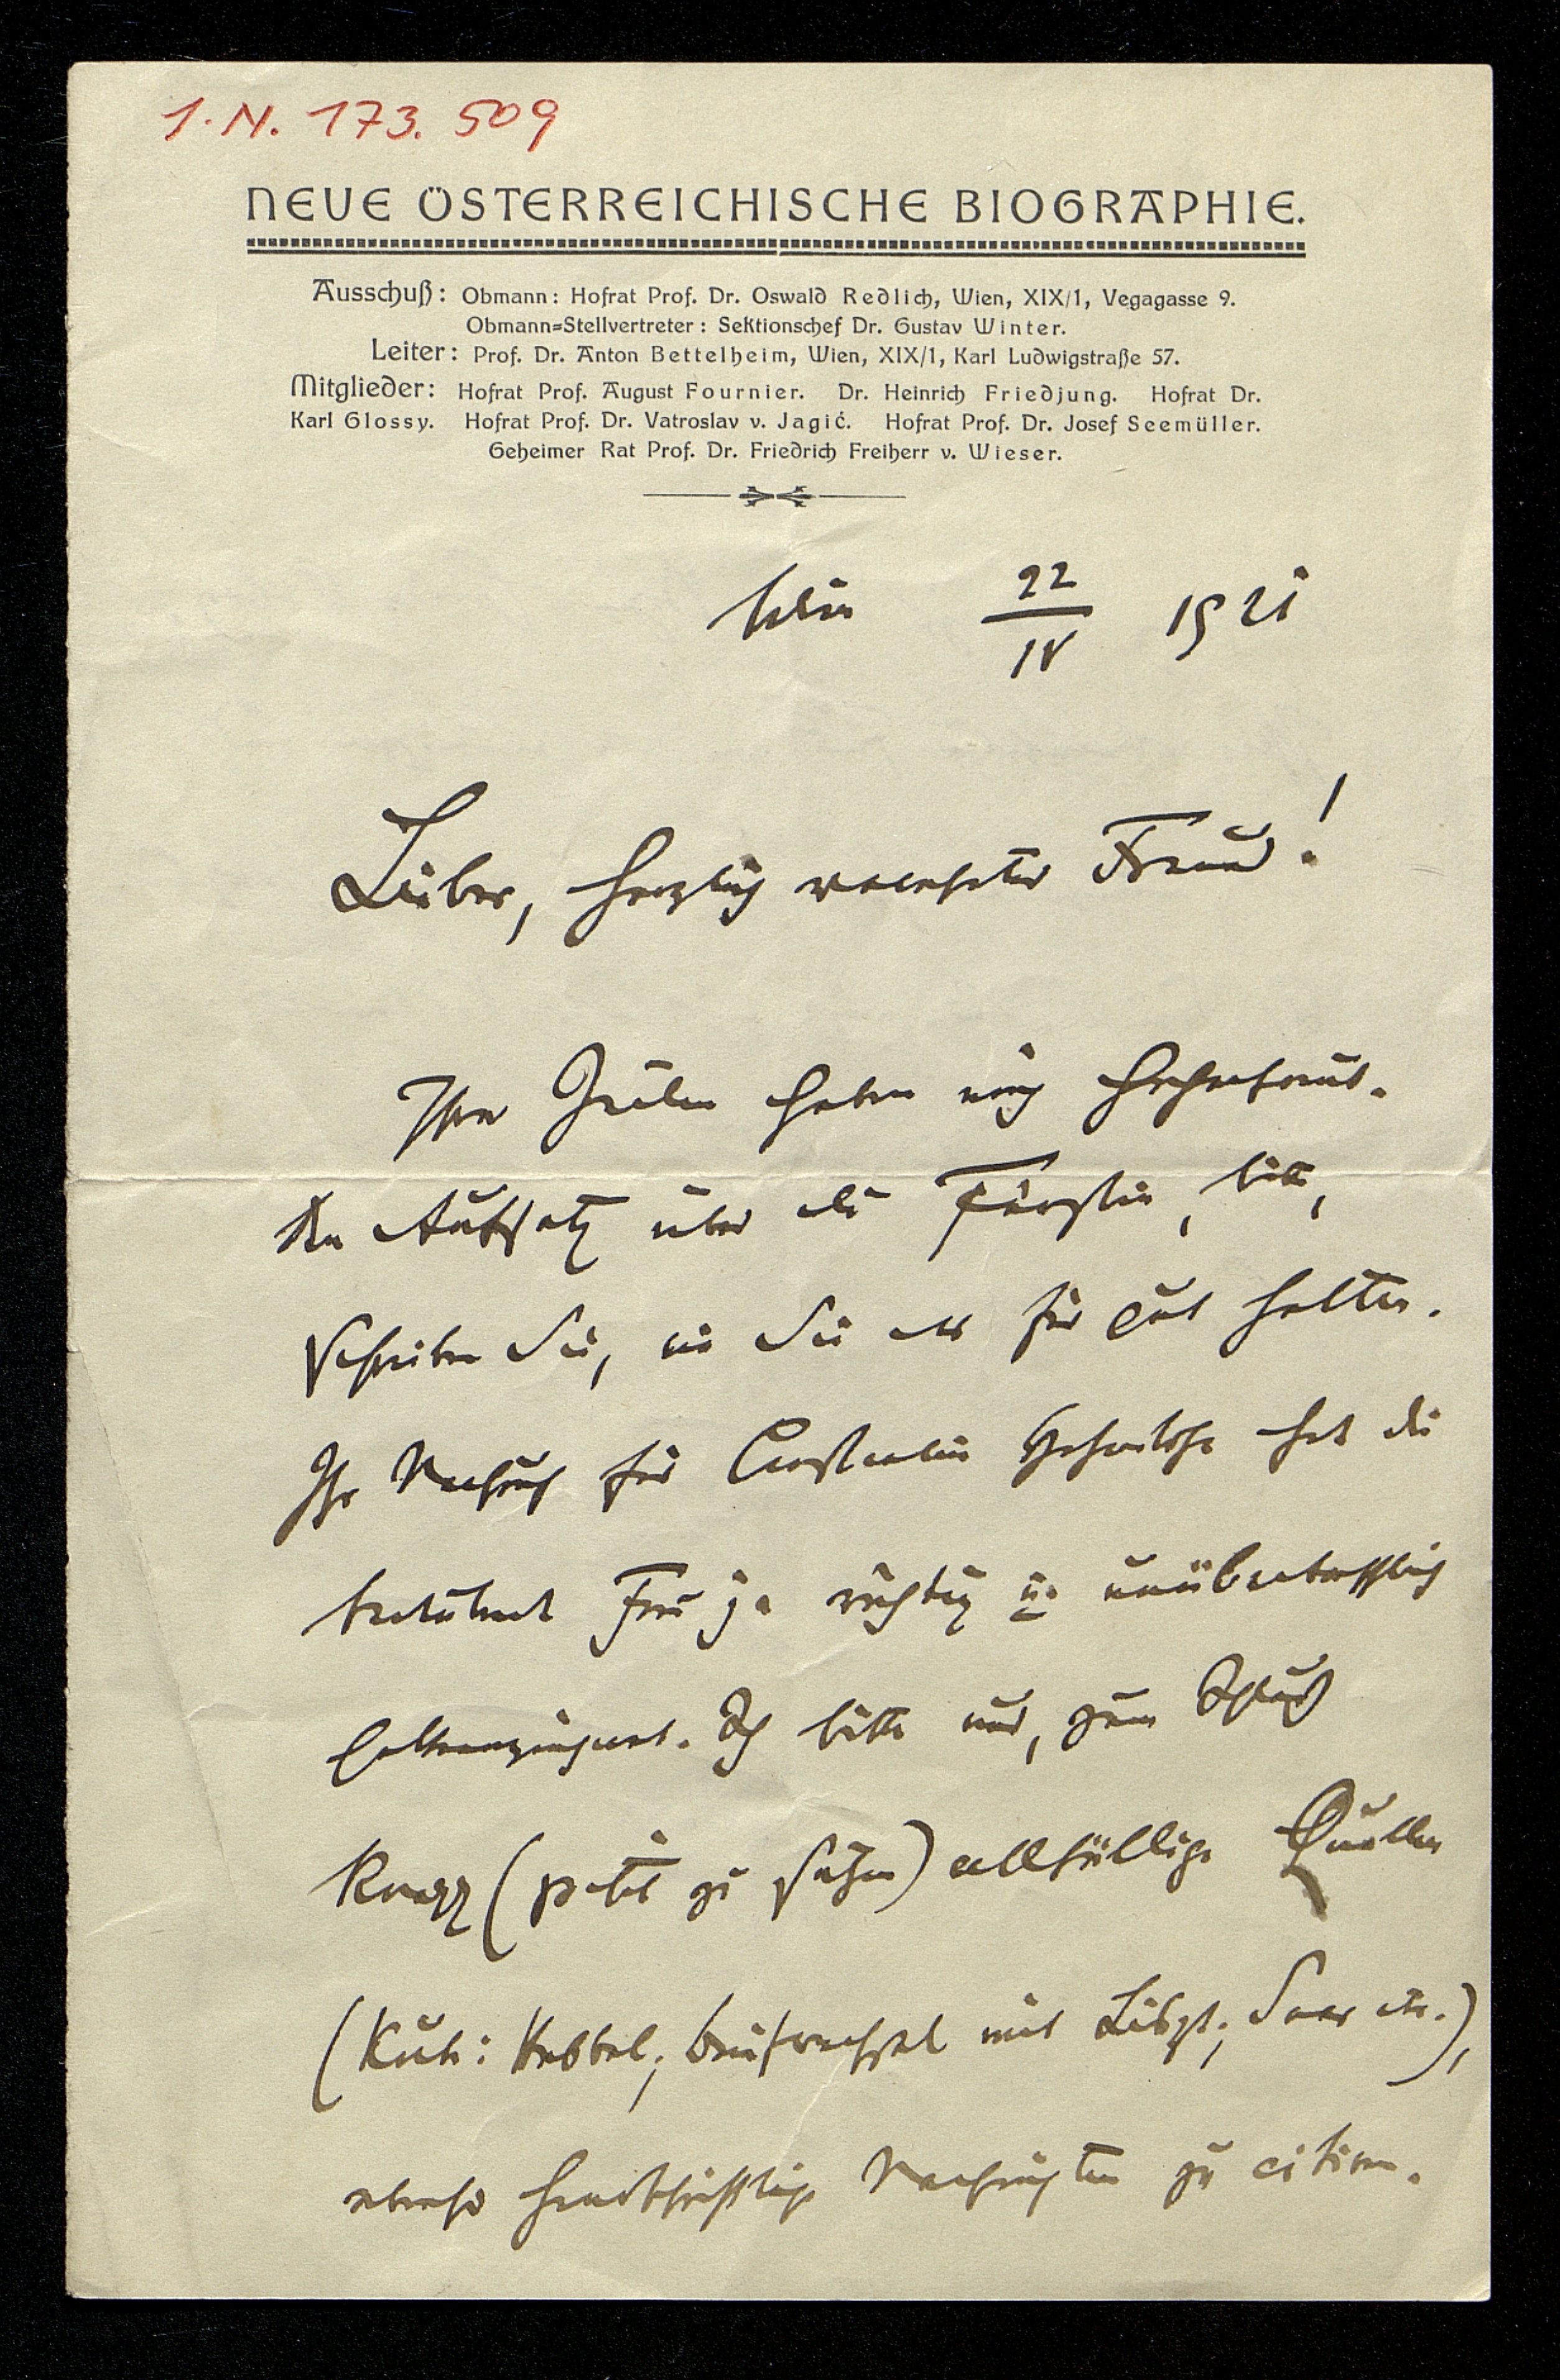 I. N. 173.509
NEUE ÖSTERREICHISCHE BIOGRAPHIE.
Ausschuß: Obmann: Hofrat Prof. Dr. Oswald Redlich, Wien, XIX/1, Vegagasse 9.
Obmann=Stellvertreter: Sektionschef Dr. Gustav Winter.
Leiter: Prof. Dr. Anton Bettelheim, Wien, XIX/1, Karl Ludwigstraße 57.
Mitglieder: Hofrat Prof. August Fournier. Dr. Heinrich Friedjung. Hofrat Dr.
Karl Glossy. Hofrat Prof. Dr. Vatroslav v. Jagić. Hofrat Prof. Dr. Josef Seemüller.
Geheimer Rat Prof. Dr. Friedrich Freiherr v. Wieser.
Wien 22/IV 1921
Lieber, herzlich verehrter Freund!
Ihre Zeilen haben mich hocherfreut.
Den Aufsatz über die Fürstin, bitte,
schreiben Sie, wie Sie es für gut halten.
Ihr Nachruf für Constantin Hohenlohe hat die
Frau ja richtig u. unübertrefflich
Ich bitte nur, zum Schluß
knapp (petit zu setzen) allfällige Quellen
(Kuh: Hebbel; Briefwechsel mit Liszt; Saar etc.),
ebenso handschriftliche Nachrichten zu citiren.